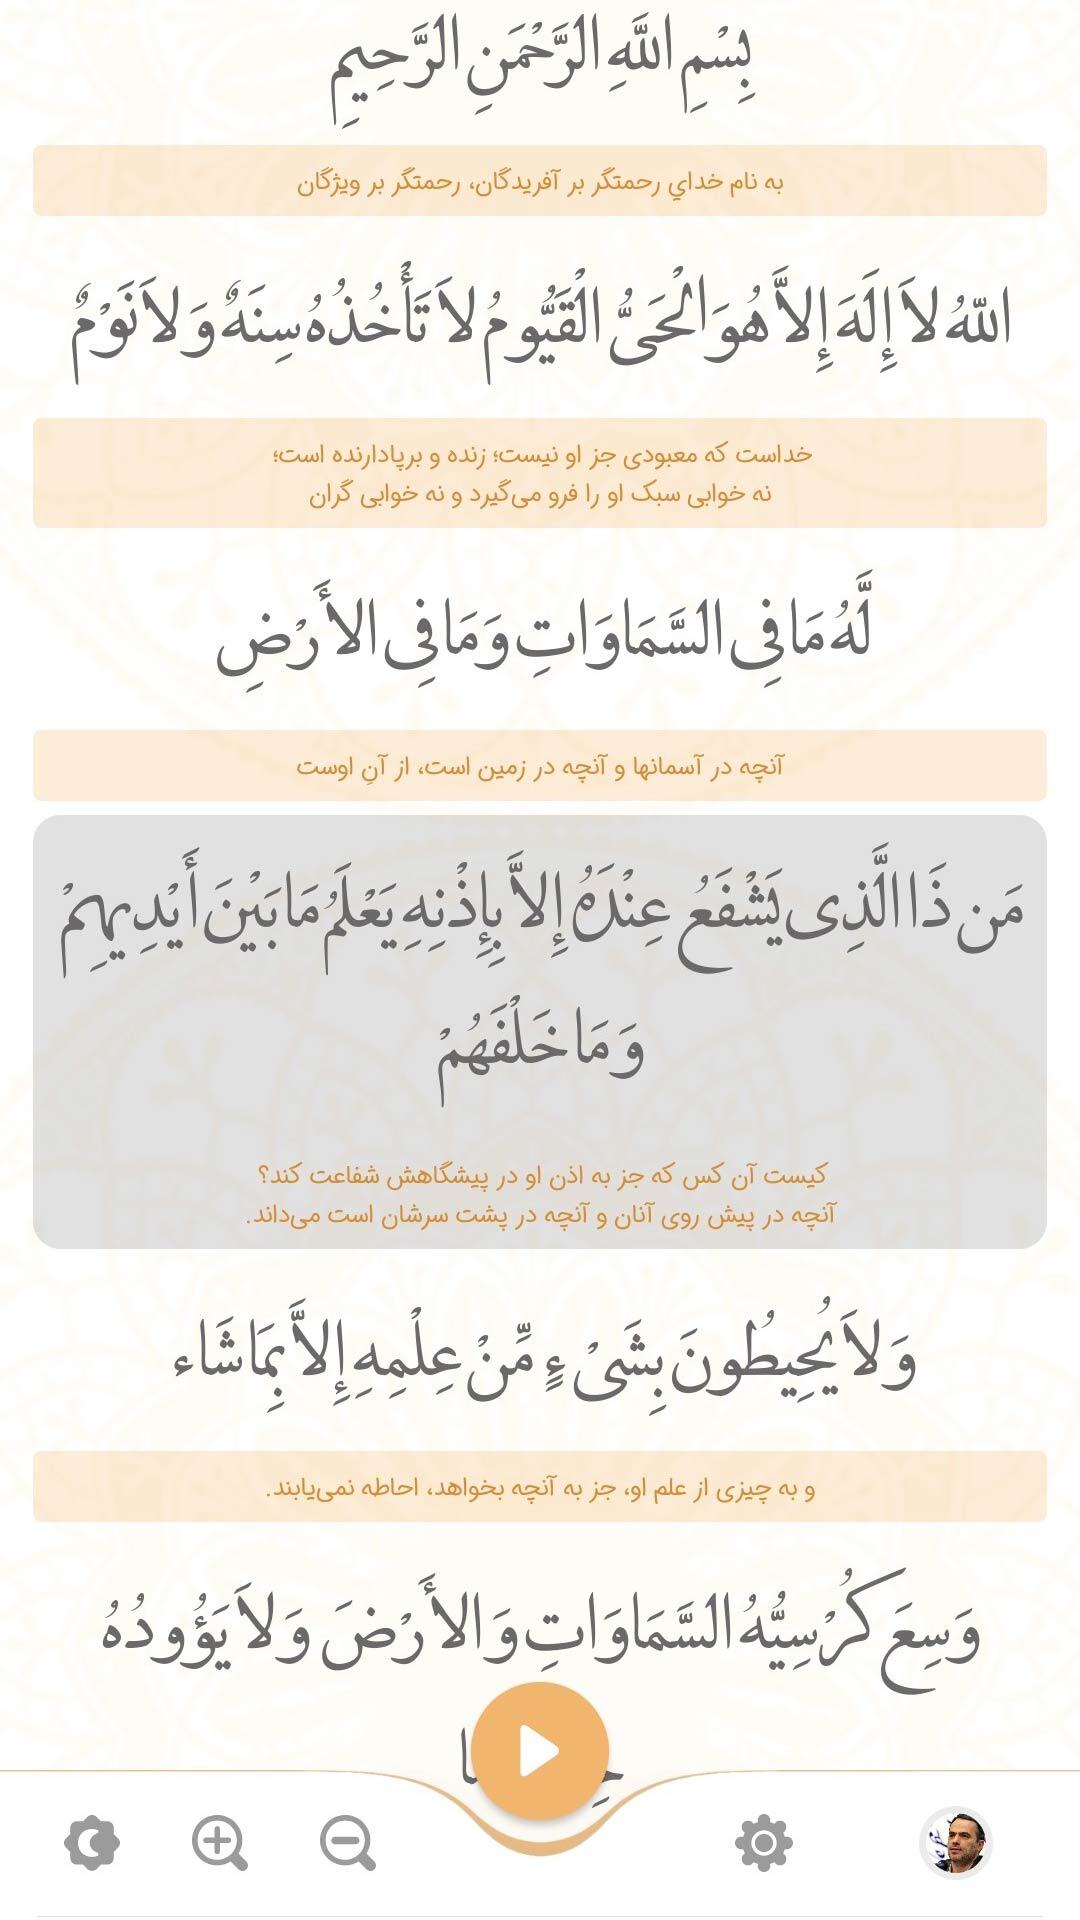 بِسْمِ اللَّهِ الرَّحْمَنِ الرَّحِيمِ
به نام خداي رحمتگر بر آفریدگان، رحمتگر بر ویژگان
اللّهُ لاَ إِلَهَ إِلاَّ هُوَ الْحَىُّ الْقَيُّومُ لاَ تَأْخُذُهُ سِنَهٌ وَلاَ نَوْمٌ
خداست که معبودی جز او نیست؛ زنده و برپادارنده است؛
نه خوابی سبک او را فرو می‌گیرد و نه خوابی گران
لَّهُ مَا فِى السَّمَاوَاتِ وَمَا فِى الأَرْضِ
آنچه در آسمانها و آنچه در زمین است، از آنِ اوست
مَن ذَا الَّذِى يَشْفَعُ عِنْدَهُ إِلاَّ بِإِذْنِهِ يَعْلَمُ مَا بَيْنَ أَيْدِيهِمْ
وَمَا خَلْفَهُمْ
کیست آن کس که جز به اذن او در پیشگاهش شفاعت کند؟
آنچه در پیش روی آنان و آنچه در پشت سرشان است می‌داند.
وَلاَ يُحِيطُونَ بِشَىْءٍ مِّنْ عِلْمِهِ إِلاَّ بِمَا شَاء
و به چیزی از علم او، جز به آنچه بخواهد، احاطه نمی‌یابند.
وَسِعَ كُرْسِيُّهُ السَّمَاوَاتِ وَالأَرْضَ وَلاَ يَؤُودُهُ